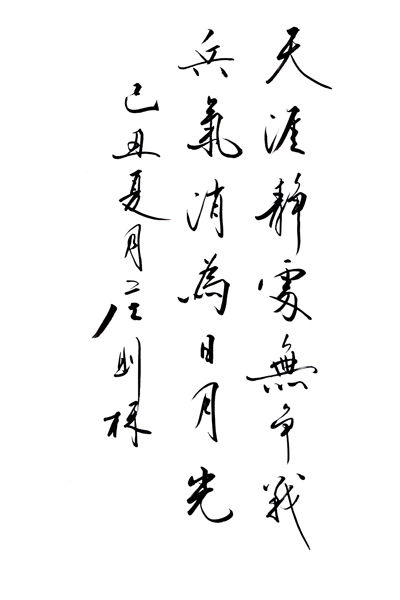 天涯静處無爭戰
兵氣消為日月光
己丑夏月莊則棟